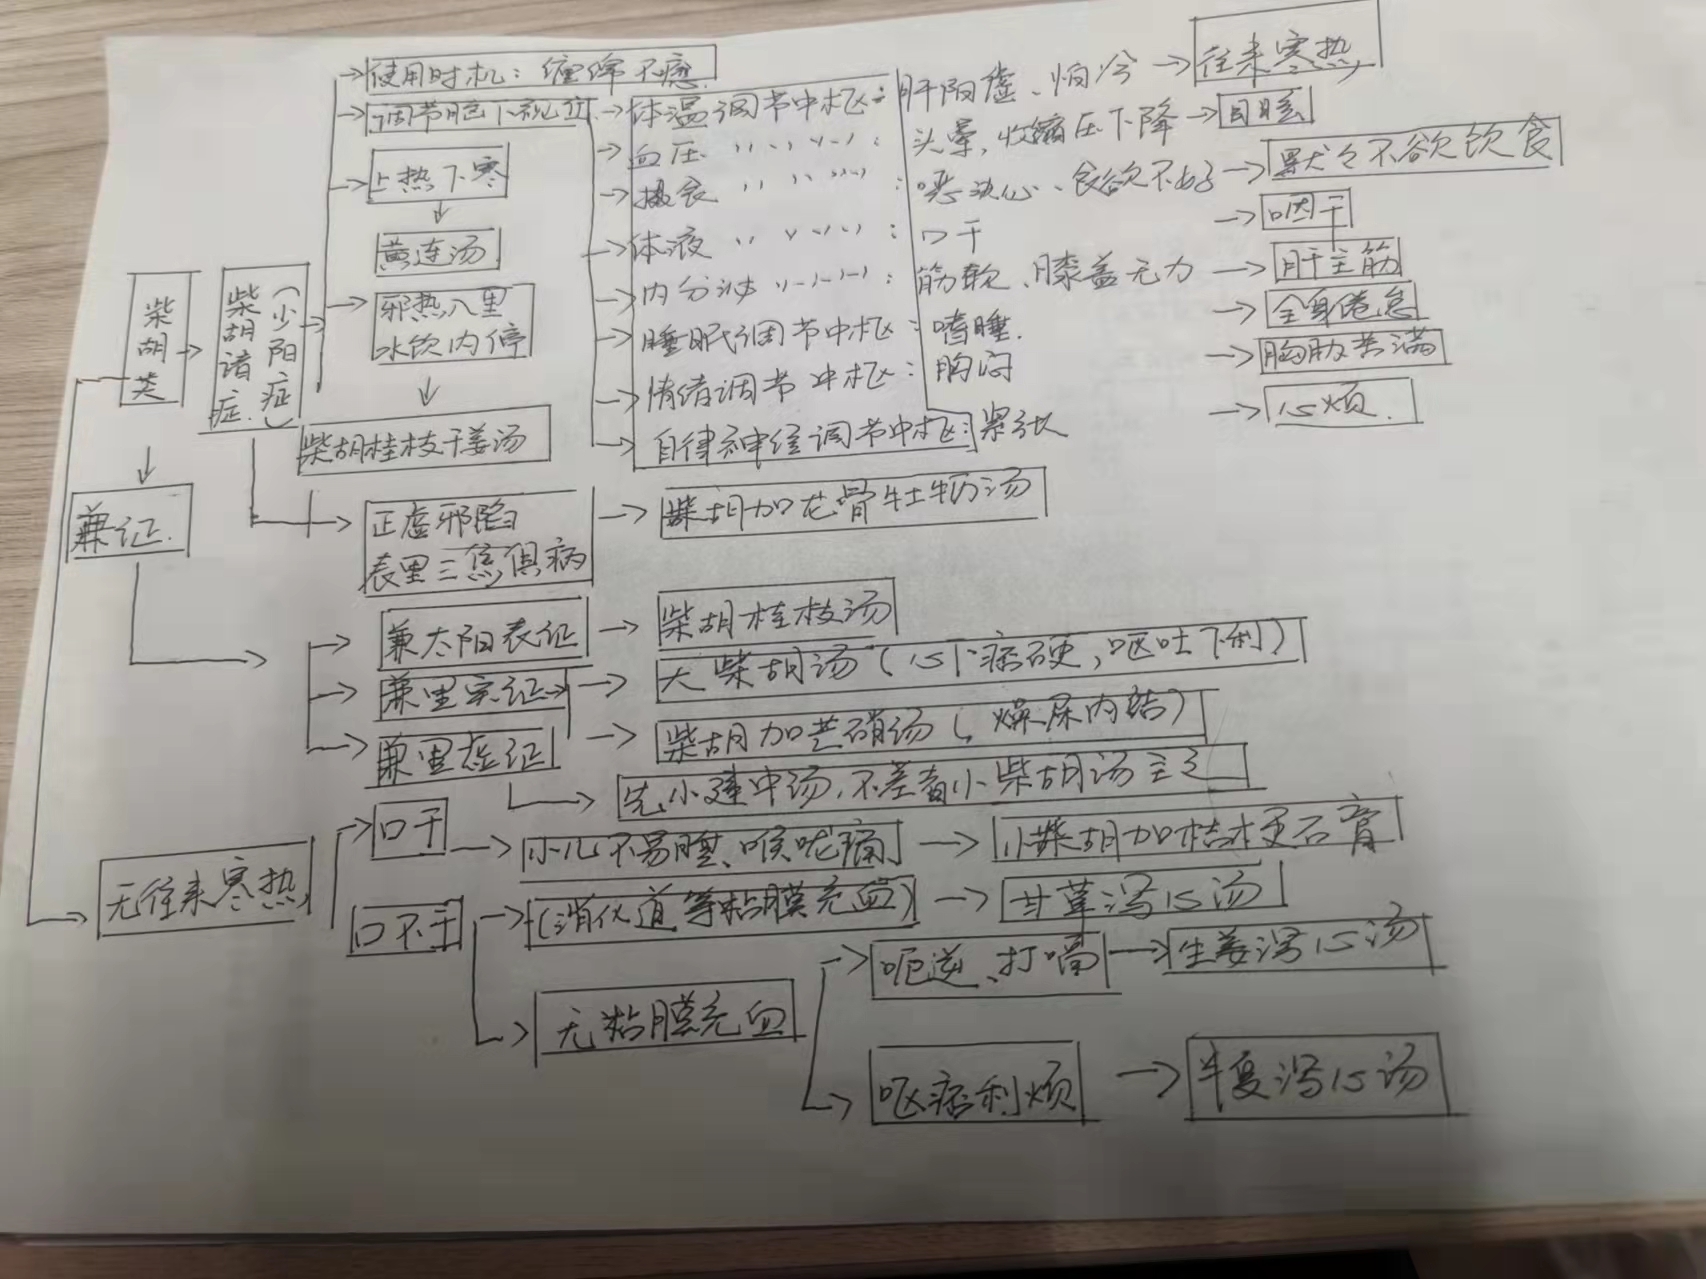 使用时机：缠绵不愈
调节脑下视丘
体温调节中枢：肝阳虚、怕冷
往来寒热
血压 〃 〃 〃 〃：头晕，收缩压下降
目眩
上热下寒
摄食 〃 〃 〃 〃：恶心、食欲不好
默々不欲饮食
黄连汤
体液 〃 〃 〃 〃：口干
咽干
柴胡类
柴胡诸症
（少阳症）
邪热入里
水饮内停
内分泌 〃 〃 〃 〃：筋软、膝盖无力
肝主筋
睡眠调节中枢：嗜睡.
全身倦怠
情绪调节中枢：胸闷
胸肋苦满
柴胡桂枝干姜汤
自律神经调节中枢：紧张
心烦.
兼证.
正虚邪陷
表里三焦俱病
柴胡加龙骨牡蛎汤
兼太阳表证
柴胡桂枝汤
兼里实证
大柴胡汤（心下痞硬，呕吐下利）
兼里虚证
柴胡加芒硝汤（燥屎内结）
先小建中汤，不差者小柴胡汤主之
无往来寒热
口干
小儿不易睡、喉咙痛
小柴胡加桔梗石膏
口不干
（消化道等粘膜充血）
甘草泻心汤
无粘膜充血
呃逆、打嗝
生姜泻心汤
呕痞利烦
半夏泻心汤